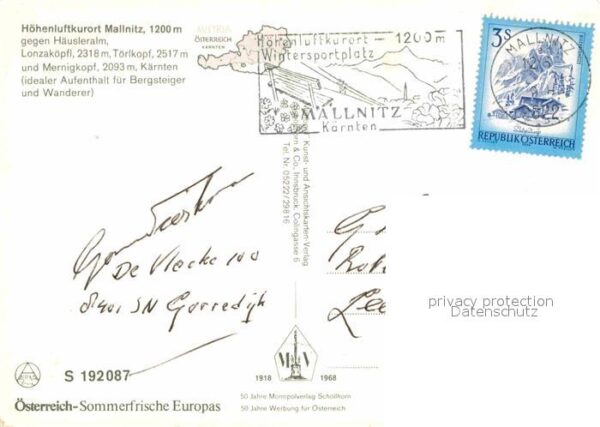 Höhenluftkurort Mallnitz, 1200 m
gegen Häusleralm,
Lonzaköpfl, 2318 m, Törlkopf, 2517 m
und Mernigkopf, 2093 m, Kärnten
(idealer Aufenthalt für Bergsteiger
und Wanderer)
AUSTRIA
ÖSTERREICH
KÄRNTEN
Höhenluftkurort - 1200 m
Wintersportplatz
MALLNITZ
Kärnten
MALLNITZ
9822
3S
REPUBLIK ÖSTERREICH
Kunst- und Ansichtskarten-Verlag
& Co., Innsbruck, Colingasse 6
Tel. Nr. 05222/29816
De Vlecke 100
8401 SN Gorredijk
privacy protection
Datenschutz
MV
1918 1968
S 192087
50 Jahre Monopolverlag Schöllhorn
50 Jahre Werbung für Österreich
Österreich-Sommerfrische Europas